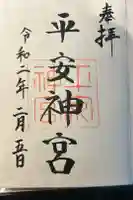 奉拝
平安神宮
令和二年二月五日